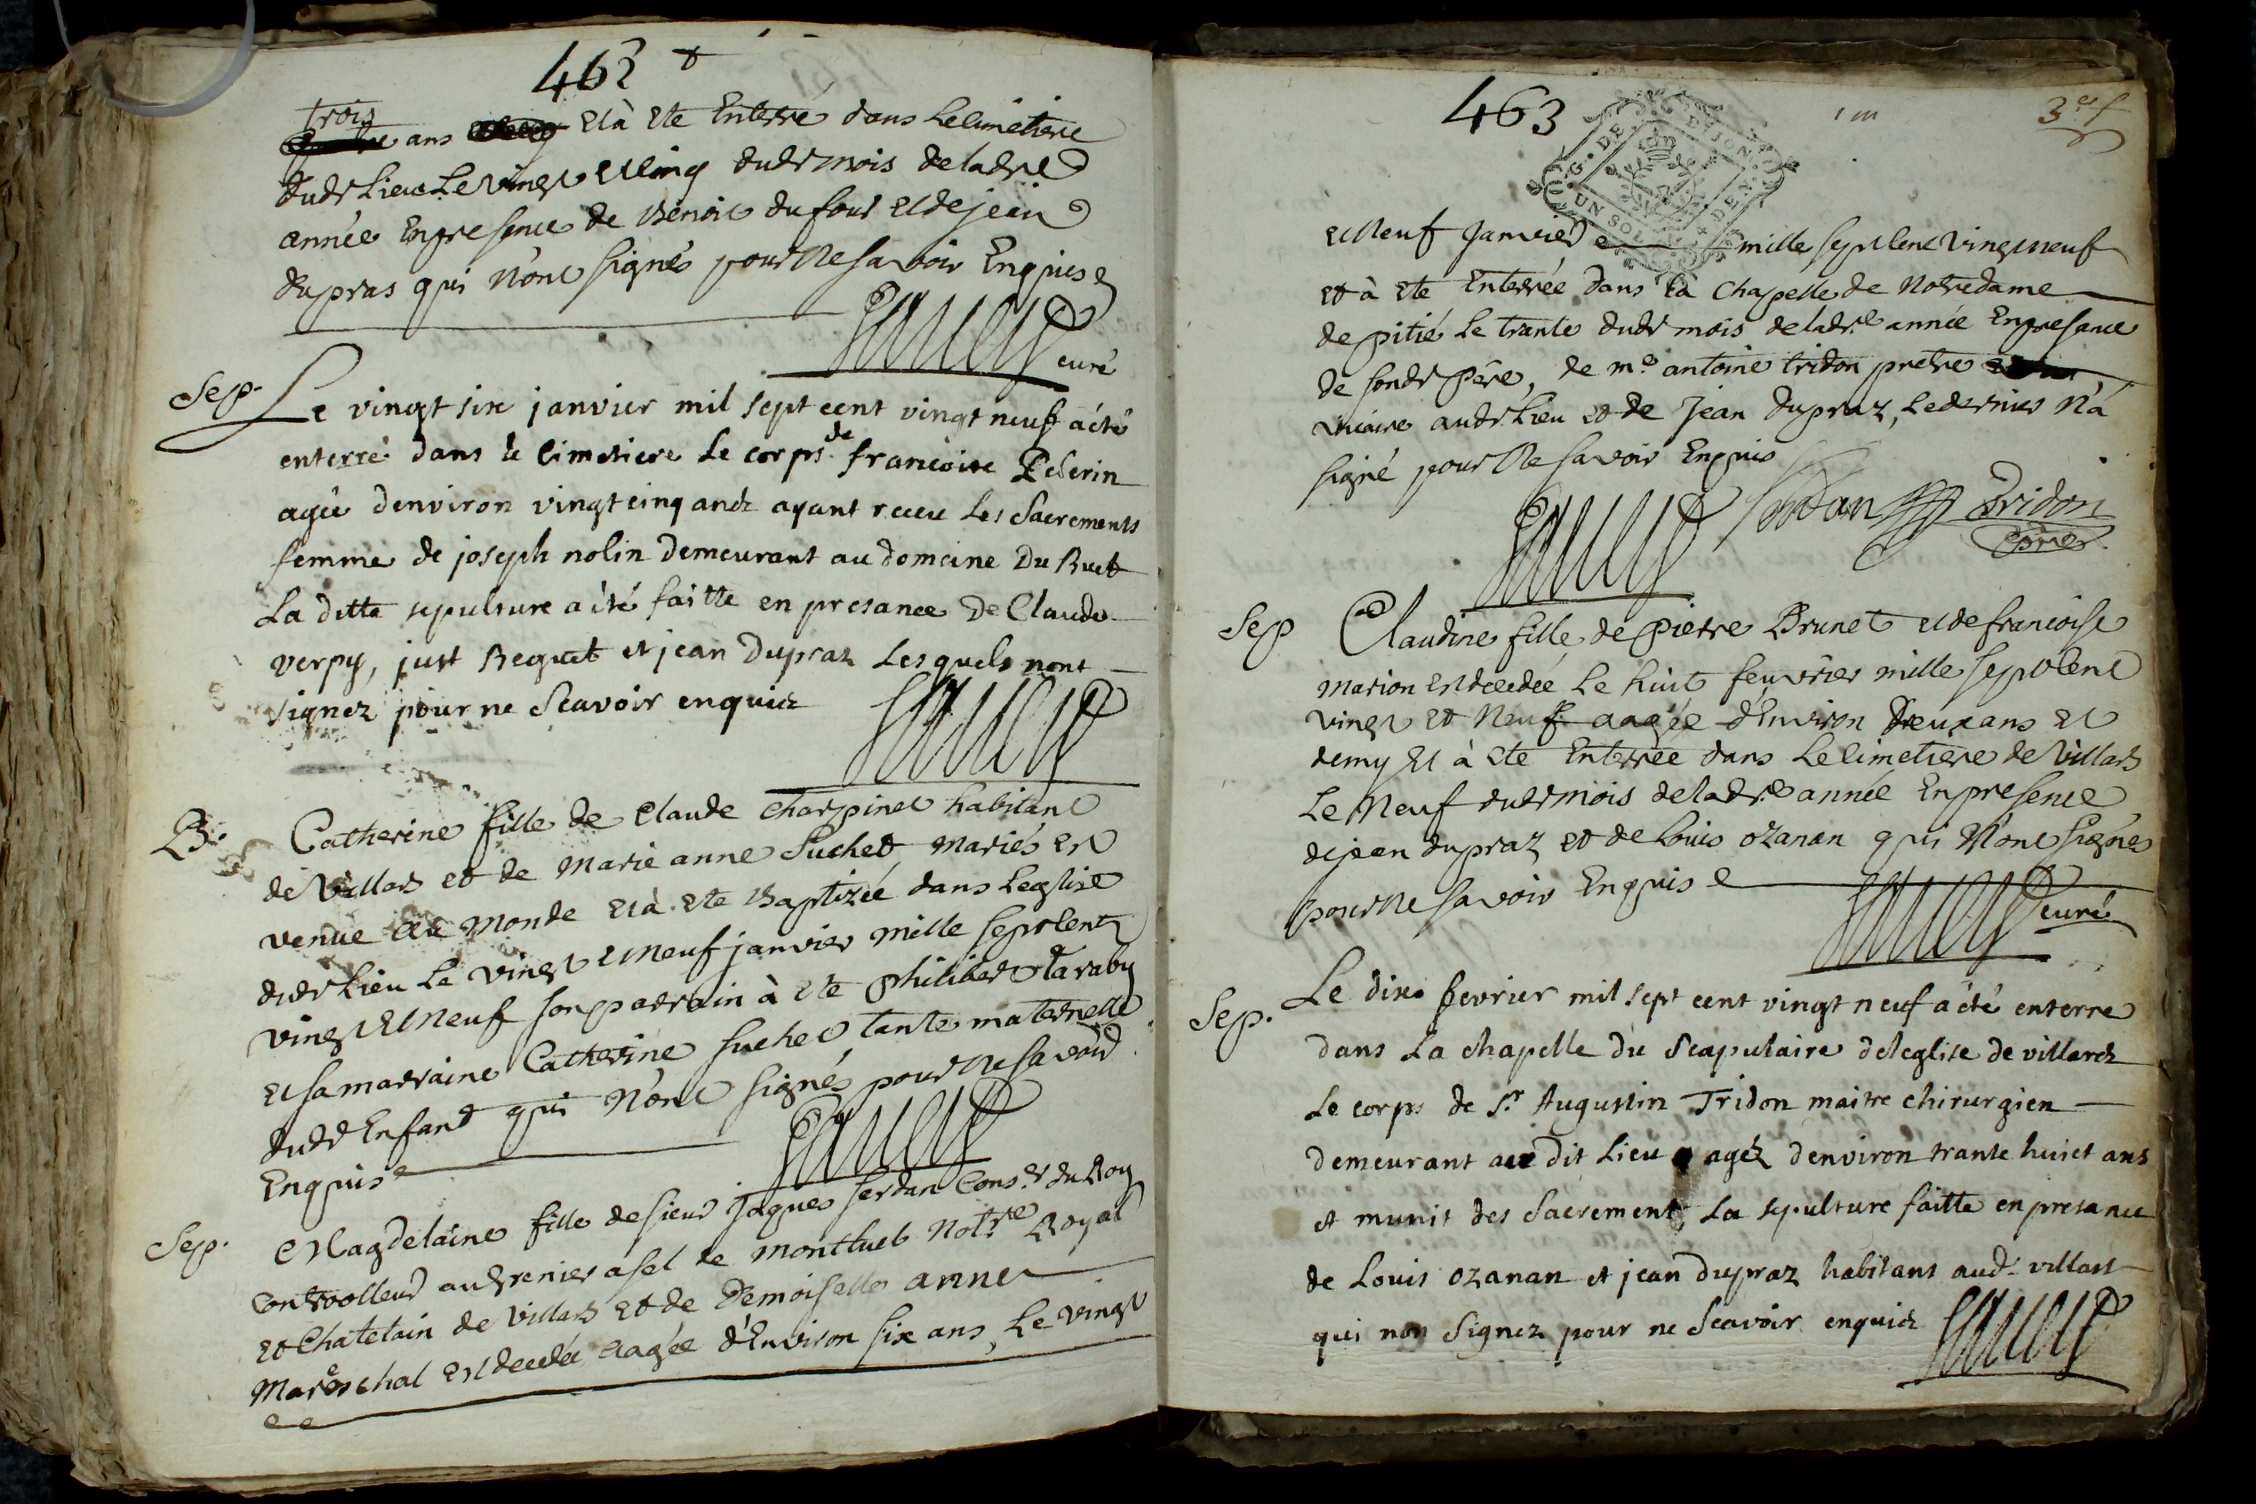 462
trois
ans Et à Ete Enterré dans Le Cimetiere
dudt Lieu Le vingt et cinq dudt mois de ladte
année En presence de Benoit dufour et de jean
dupras qui n'ont signés pour Ne savoir Enquis
curé
Sep. Le vingt six janvier mil sept cent vingt neuf a été
enterré dans le Cimetiere le corps de francoise Pelerin
agée denviron vingt cinq andz ayant receu Les Sacrements
femme de joseph nolin demeurant au domeine Du Buet
La ditte sepulture a été faitte en presance De Claude
verpy, just Bequet et jean Dupraz Lesquels nont
signez pour ne Scavoir enquiz
B. Catherine fille de Claude Charpinet habitant
de Villars et de Marie anne Suchet, Mariés Est
venue au Monde Et à Ete Baptizée dans Leglise
dudt Lieu Le vingt et neuf janvier mille sept cent
vingt Et Neuf son parrain à Ete philibert Taraby
et sa marraine Catherine Suchet tante maternelle
dudt Enfant qui N'ont Signés pour Ne savoir
Enquis
Sep. Magdelaine fille de sieur Jaques serdan Conser du Roy
Controolleur au grenier a sel de montluel Notre Royal
et Chatelain de Villars et de Demoiselle anne
Mareschal est decedée aagée d'Environ six ans, Le vingt
463
3e f
G. DE DIJON
UN SOL DEN.
et Neuf Janvier mille sept cent vingt neuf
et à Ete Enterrée Dans La Chapelle de Notre dame
de pitié Le trante dudt mois de ladte année En presance
de sondt Père, de me antoine tridon pretre
vicaire audt Lieu et de Jean Dupraz, Le dernier N'a
signé pour Ne savoir Enquis
Serdan Tridon
ptre
Sep Claudine fille de Pierre Brunet et de francoise
Marion est decedée Le huit feuvrier mille sept Cent
vingt et Neuf aagée d'Environ Deux ans et
demy Et à Ete Enterrée dans Le Cimetiere de Villars
Le Neuf dudt mois de ladte année En presence
de jean dupraz et de Louis ozanan qui N'ont Signés
pour Ne savoir Enquis
curé
Sep. Le dix fevrier mil sept cent vingt neuf a été enterré
dans La chapelle du Scapulaire deleglise de villardz
Le corps de Sr. Augustin Tridon maitre chirurgien
demeurant au dit Lieu agéz denviron trante huict ans
et munit des Sacrement, La sepulture faitte en presance
de Louis ozanan et jean dupraz habitans audt villars
qui non Signez pour ne Scavoir enquiz